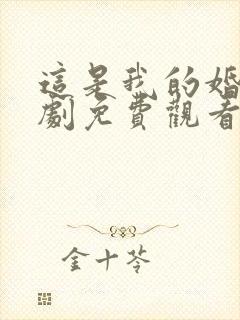 這是我的婚
劇免費觀看
金十苓